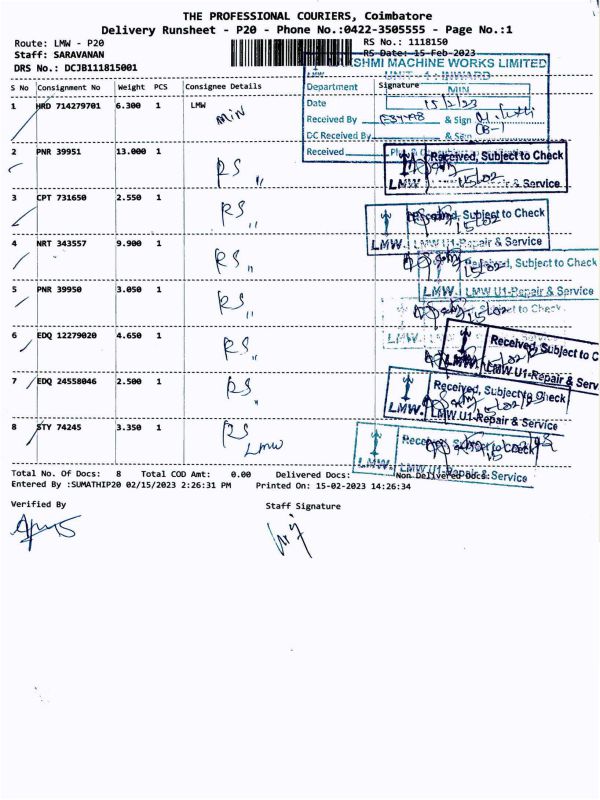 THE PROFESSIONAL COURIERS, Coimbatore
Delivery Runsheet - P20 - Phone No.:0422-3505555 - Page No.:1
Route: LMW - P20
RS No.: 1118150
Staff: SARAVANAN
RS Date: 15-Feb-2023
DRS No.: DCJB111815001
LAKSHMI MACHINE WORKS LIMITED
UNIT - 1 : INWARD
S No Consignment No Weight PCS Consignee Details Signature
Department MIN
Date 15/2/23
Received By & Sign
DC Received By & Sign
Received
1 HRD 714279701 6.300 1 LMW
MIN
2 PNR 39951 13.000 1
RS "
Received, Subject to Check
LMW. & Service
3 CPT 731650 2.550 1
RS "
Received, Subject to Check
LMW. LMW U1-Repair & Service
4 NRT 343557 9.900 1
RS "
Received, Subject to Check
LMW. LMW U1-Repair & Service
5 PNR 39950 3.050 1
RS "
Subject to Check
LMW.
6 EDQ 12279020 4.650 1
RS "
Received, Subject to C
LMW. LMW U1-Repair & Serv
7 EDQ 24558046 2.500 1
RS "
Received, Subject to Check
LMW. LMW U1-Repair & Service
8 STY 74245 3.350 1
RS
LMW
Received, Subject to Check
LMW. LMW U1-Repair & Service
Total No. Of Docs: 8 Total COD Amt: 0.00 Delivered Docs: Non Delivered Docs:
Entered By :SUMATHIP20 02/15/2023 2:26:31 PM Printed On: 15-02-2023 14:26:34
Verified By Staff Signature